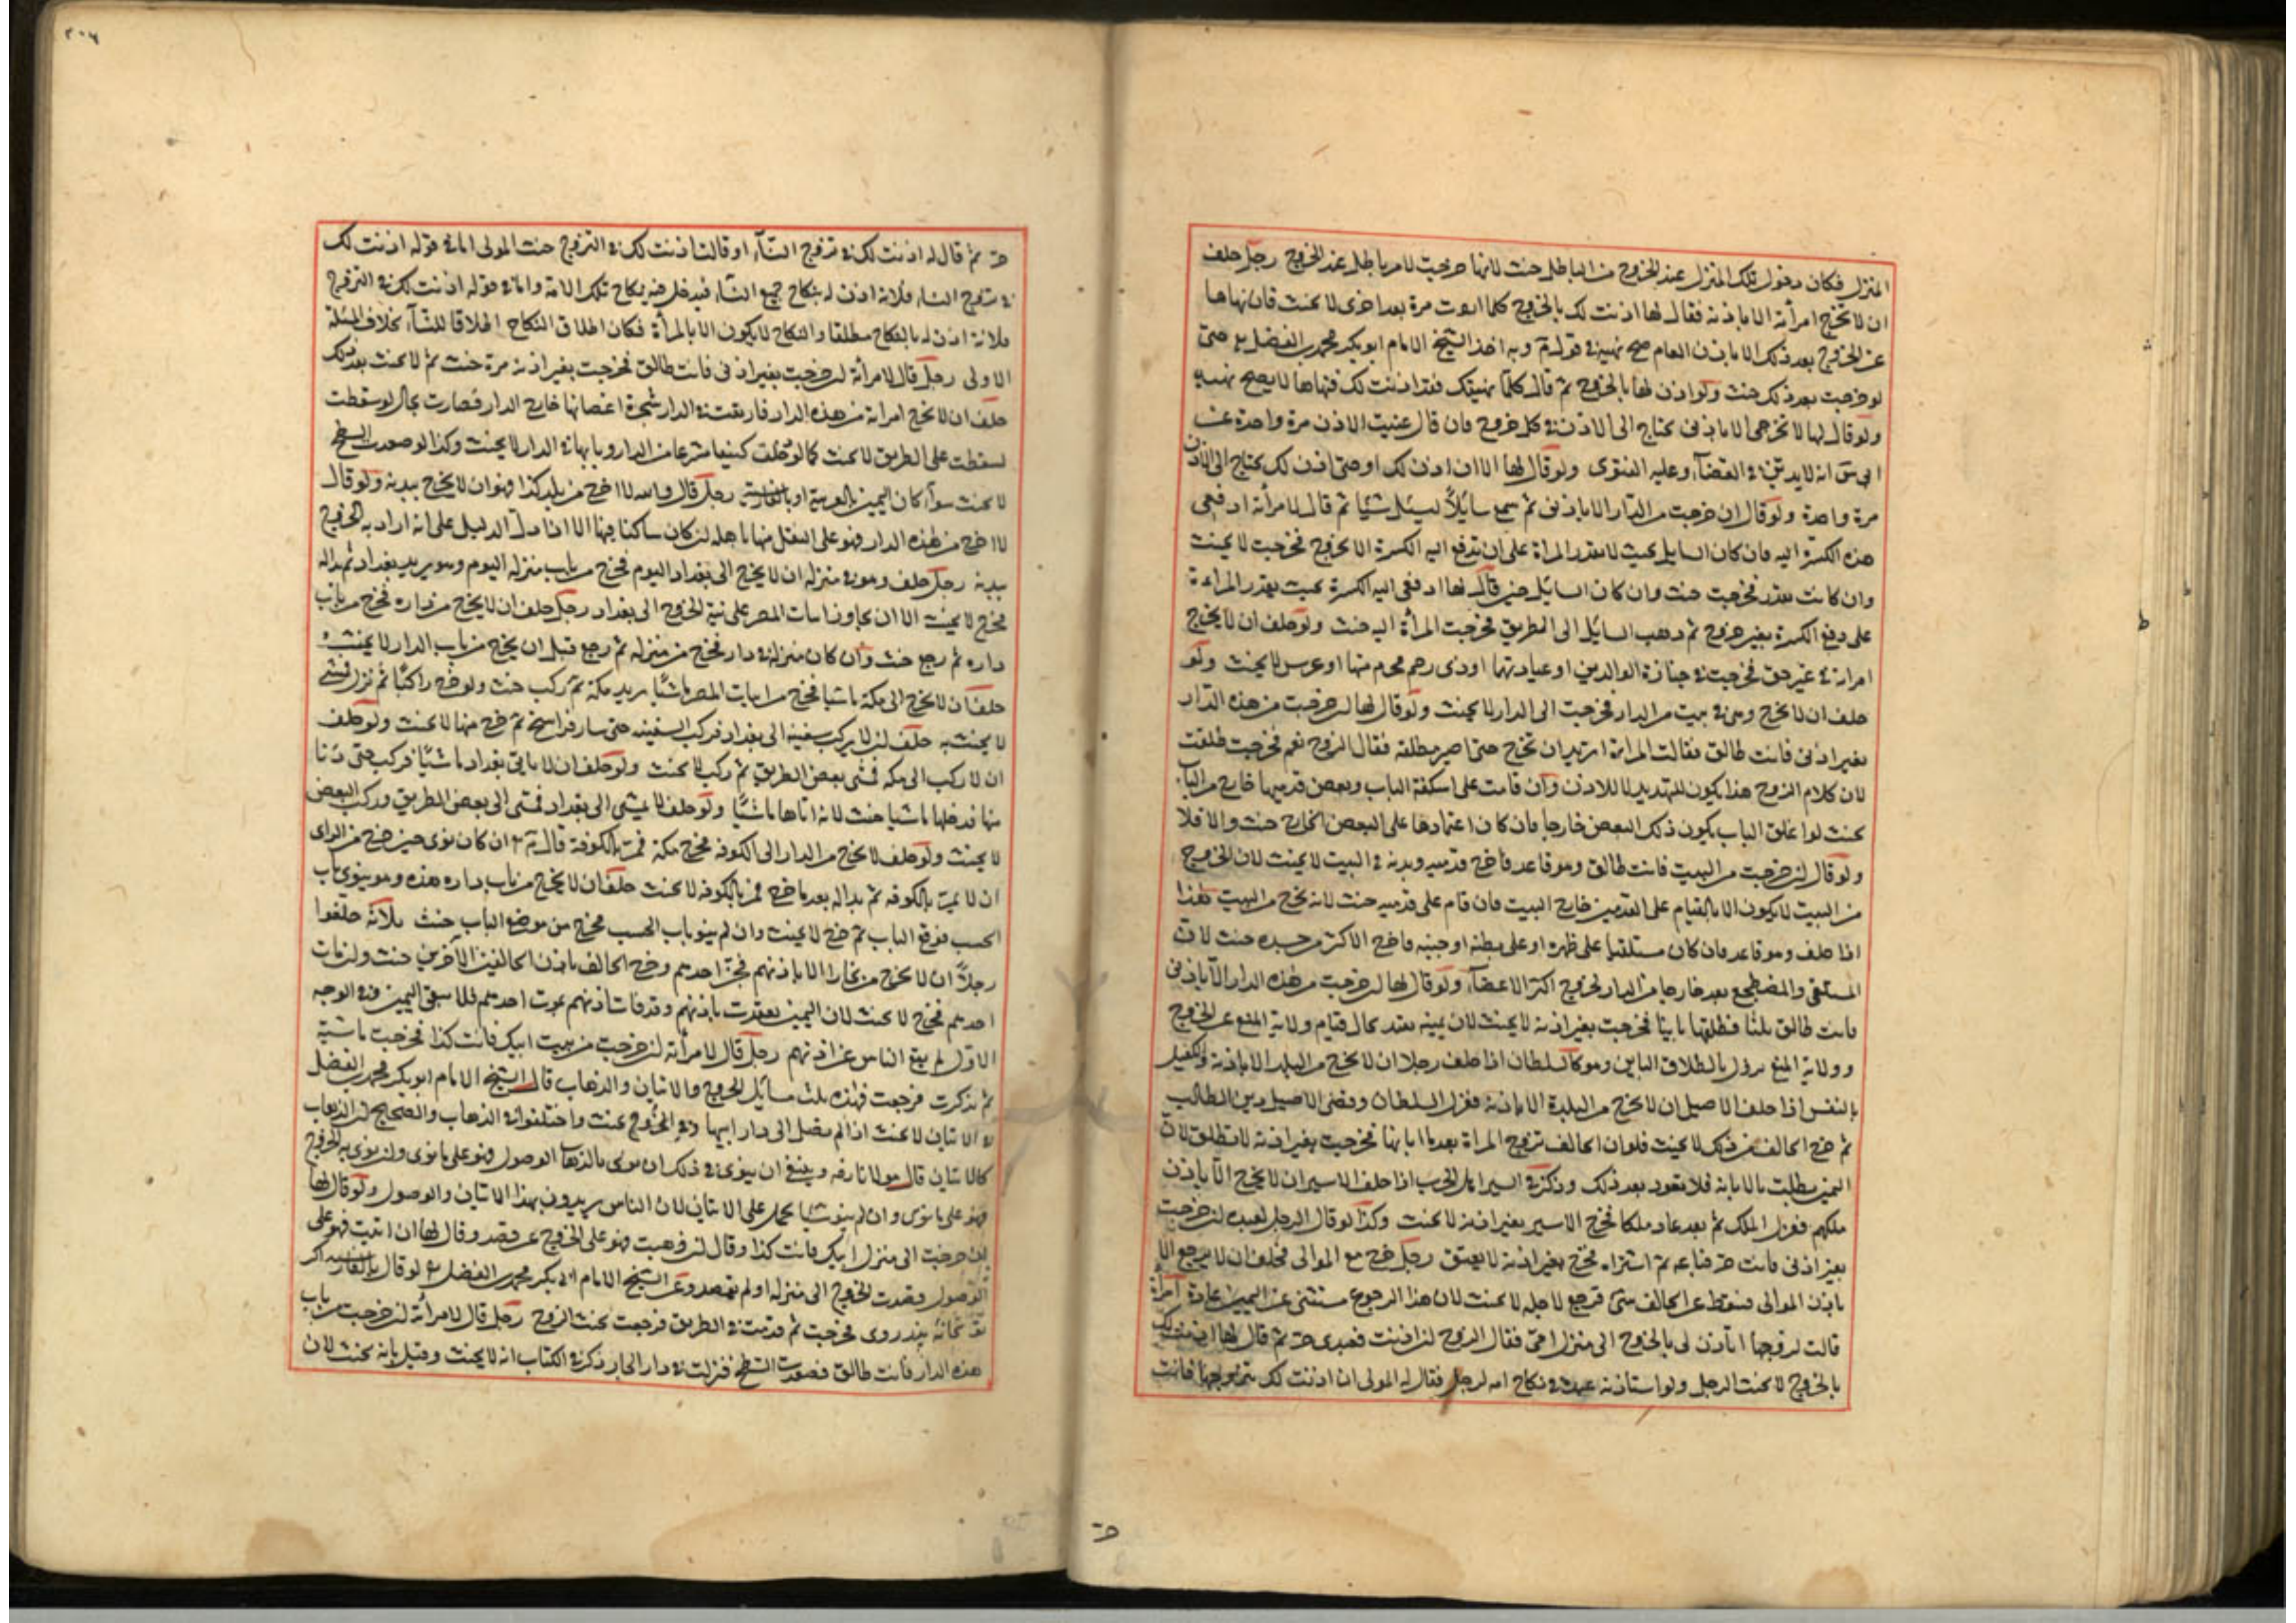 المنزل فكان دخول تلك المنزل عند الخروج من الباطل حنث لانها خرجت لامر باطل عند الخروج رجل حلف
ان لا تخرج امرأته الا باذنه فقال لها اذنت لك بالخروج كلما اردت مرة بعد اخرى لا يحنث فان نهاها
عن الخروج بعد ذلك الاذن العام صح نهيه في قول م وبه اخذ الشيخ الامام ابو بكر محمد بن الفضل رح حتى
لو خرجت بعد ذلك حنث ولو اذن لها بالخروج ثم قال كلما نهيتك فقد اذنت لك فنهاها لا يصح نهيه
ولو قال لها لا تخرجى الا باذنى يحتاج الى الاذن في كل خروج فان قال عنيت الاذن مرة واحدة عن
ابى س انه لا يدين في القضاء وعليه الفتوى ولو قال لها الا ان اذن لك او حتى اذن لك يحتاج الى الاذن
مرة واحدة ولو قال ان خرجت من الدار الا باذنى ثم سمع سايلا يسئل شيئا ثم قال لامرأته ادفعى
هذه الكسرة اليه فان كان السايل بحيث لا تقدر المرأة على ان تدفع اليه الكسرة الا بخروج فخرجت لا يحنث
وان كانت تقدر فخرجت حنث وان كان السايل حين قال لها ادفعى اليه الكسرة بحيث تقدر المراءة
على دفع الكسرة بغير خروج ثم ذهب السايل الى الطريق فخرجت المرأة اليه حنث ولو حلف ان لا تخرج
امرأته في غير حق فخرجت في جنازة الوالدين او عيادتهما او ذى رحم محرم منها او عرس لا يحنث ولو
حلف ان لا تخرج وهى في بيت من الدار فخرجت الى الدار لا يحنث ولو قال لها ان خرجت من هذه الدار
بغير اذنى فانت طالق فقالت المرأة اتريد ان تخرج حتى اصير مطلقة فقال الزوج نعم فخرجت طلقت
لان كلام الزوج هذا يكون للتهديد لا للاذن وان قامت على اسكفة الباب وبعض قدميها خارج من الباب
بحيث لو اغلق الباب يكون ذلك البعض خارجا فان كان اعتمادها على البعض الخارج حنث والا فلا
ولو قال ان خرجت من البيت فانت طالق وهو قاعد فاخرج قدميه وبدنه في البيت لا يحنث لان الخروج
من البيت لا يكون الا بالقيام على القدمين خارج البيت فان قام على قدميه حنث لانه يخرج من البيت هذا
اذا حلف وهو قاعد فان كان مستلقيا على ظهره او على بطنه او جنبه فاخرج الاكثر من جسده حنث لان
المستلقى والمضطجع يعد خارجا من الدار بخروج اكثر الاعضاء ولو قال لها ان خرجت من هذه الدار الا باذنى
فانت طالق ثلثا فطلقها باينا فخرجت بغير اذنه لا يحنث لان يمينه تقيد بحال قيام ولاية المنع عن الخروج
وولاية المنع تزول بالطلاق الباين وهو كالسلطان اذا حلف رجلا ان لا يخرج من البلد الا باذنه والكفيل
بالنفس اذا حلف الاصيل ان لا يخرج من البلدة الا باذنه فعزل السلطان وقضى الاصيل دين الطالب
ثم خرج الحالف من ذلك لا يحنث فلو ان الحالف تزوج المرأة بعد ما ابانها فخرجت بغير اذنه لا تطلق لان
اليمين بطلت بالابانة فلا تعود بعد ذلك وذكر في السير اهل الحرب اذا حلف الاسير ان لا يخرج الا باذن
ملكهم فعزل الملك ثم بعد عاد ملكا فخرج الاسير بغير اذنه لا يحنث وكذا لو قال الرجل لعبده ان خرجت
بغير اذنى فانت حر فباعه ثم اشتراه فخرج بغير اذنه لا يعتق رجل خرج مع الوالى فحلف ان لا يرجع الا
باذن الوالى فسقط عن الحالف شئ فرجع لاجله لا يحنث لان هذا الرجوع مستثنى عن اليمين عادة امرأة
قالت لزوجها اتأذن لى بالخروج الى منزل امى فقال الزوج ان اذنت فعبدى حر ثم قال لها اذنت لك
بالخروج لا يحنث الرجل ولو استاذنه عبده في نكاح امة لرجل فقال له المولى ان اذنت لك بتزوجها فانت
حر
٣٠٦
حر ثم قال له اذنت لك في تزوج النساء او قالت اذنت لك في التزوج حنث المولى اما في قوله اذنت لك
في تزوج النساء فلانه اذن له بنكاح جميع النساء فيدخل فيه نكاح تلك الامة واما في قوله اذنت لك في التزوج
فلانه اذن له بالنكاح مطلقا والنكاح لا يكون الا بالمرأة فكان اطلاق النكاح اطلاقا للنساء بخلاف المسئلة
الاولى رجل قال لامرأته ان خرجت بغير اذنى فانت طالق فخرجت بغير اذنه مرة حنث ثم لا يحنث بعد ذلك
حلف ان لا تخرج امراته من هذه الدار فارتقت في الدار شجرة اغصانها خارج الدار فصارت بحال لو سقطت
لسقطت على الطريق لا يحنث كما لو دخلت كنيفا شرعا من الدار وبابها في الدار لا يحنث وكذا لو صعدت السطح
لا يحنث سواء كان اليمين بالعربية او بالفارسية رجل قال والله لا اخرج من بلد كذا فهو ان لا يخرج ببدنه ولو قال
لا اخرج من هذه الدار فهو على النقل منها باهله ان كان ساكنا فيها الا اذا دل الدليل على انه اراد به الخروج
ببدنه رجل حلف وهو في منزله ان لا يخرج الى بغداد اليوم فخرج من باب منزله اليوم وهو يريد بغداد ثم بدا له
فخرج لا يحنث الا ان يجاوز ابيات المصر على نية الخروج الى بغداد رجل حلف ان لا يخرج من داره فخرج من باب
داره ثم رجع حنث وان كان منزله في دار فخرج من منزله ثم رجع قبل ان يخرج من باب الدار لا يحنث
حلف ان لا يخرج الى مكة ماشيا فخرج من ابيات المصر ماشيا يريد مكة ثم ركب حنث ولو خرج راكبا ثم نزل فمشى
لا يحنث به حلف ان لا يركب سفينة الى بغداد فركب السفينة حتى سار فراسخ ثم خرج منها لا يحنث ولو حلف
ان لا يركب الى مكه فمشى بعض الطريق ثم ركب لا يحنث ولو حلف ان لا ياتى بغداد ماشيا فركب حتى دنا
منها فدخلها ماشيا حنث لانه اتاها ماشيا ولو حلف لا يمشى الى بغداد فمشى الى بعض الطريق وركب البعض
لا يحنث ولو حلف لا يخرج من الدار الى الكوفه فخرج مكة فمر بالكوفة قال م ان كان نوى حين خرج من
ان لا يمر بالكوفه ثم بدا له بعد ما خرج فمر بالكوفه لا يحنث حلف ان لا يخرج من باب داره هذه وهو ينوى باب
الخشب فرفع الباب ثم خرج لا يحنث وان لم ينو باب الخشب فخرج من موضع الباب حنث ثلاثة حلفوا
رجلا ان لا يخرج من بخارا الا باذنهم فجن احدهم وخرج الحالف باذن الحالفين الاخرين حنث وان مات
احدهم فخرج لا يحنث لان اليمين تعقدت باذنهم وقد فات اذنهم بموت احدهم فلا يبقى اليمين وفي الوجه
الاول لم يقع الناس عن اذنهم رجل قال لامرأته ان خرجت من بيت ابيك فانت كذا فخرجت ماشية
ثم تذكرت فرجعت فهذه ثلث مسائل الخروج والاتيان والذهاب قال الشيخ الامام ابو بكر محمد بن الفضل
في الاتيان لا يحنث اذا لم تصل الى دار ابيها وفي الخروج يحنث واختلفوا في الذهاب والصحيح ان الذهاب
كالاتيان قال مولانا رضه وينبغى ان ينوى في ذلك ان نوى بالذهاب الوصول فهو على ما نوى وان نوى به الخروج
فهو على ما نوى وان لم ينو شيئا يحمل على الاتيان لان الناس يريدون بهذا الاتيان والوصول ولو قال لها
ان خرجت الى منزل ابيك فانت كذا وقال ان ذهبت فهو على الخروج عن قصد وقال لها ان اتيت فهو على
الوصول قصدت الخروج الى منزله او لم تقصد وعن الشيخ الامام ابى بكر محمد بن الفضل رح لو قال بالفارسية اكر
بخانه پدر روى فخرجت ثم قدمت في الطريق فرجعت يحنث الزوج رجل قال لامرأته ان خرجت من باب
هذه الدار فانت طالق فصعدت السطح فنزلت في دار الجار ذكر في الكتاب انه لا يحنث وقيل بانه يحنث لان